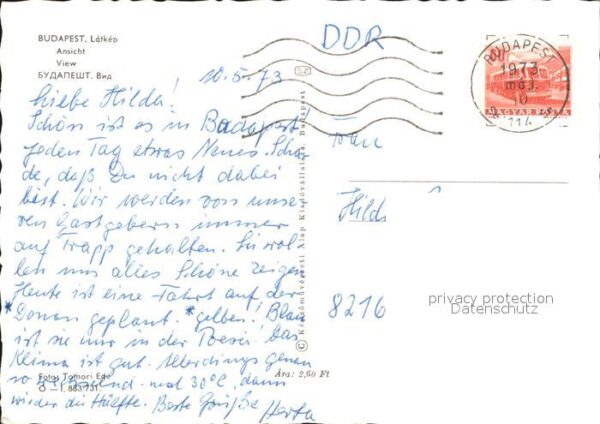 BUDAPEST. Látkép
Ansicht
View
БУДАПЕШТ. Вид
DDR
BUDAPEST
1973
máj.
10
114
MAGYAR POSTA
10.5.73
Liebe Hilda!
Schön ist es in Budapest!
Jeden Tag etwas Neues. Scha
de, daß Du nicht dabei
bist. Wir werden von unse
ren Gastgebern immer
auf Trapp gehalten. Sie wol
len uns alles Schöne zeigen
Heute ist eine Fahrt auf der
*Donau geplant. *gelben! Blau
ist sie nur in der Poesie. Das
Klima ist gut. Allerdings genau
so wechselnd - mal 30°C, dann
wieder die Hälfte. Beste Grüße Herta
Fotos Tamori Ede
Ára: 2,60 Ft
© Képzőművészeti Alap Kiadóvállalata, Budapest
Frau
Hild
8216
privacy protection
Datenschutz